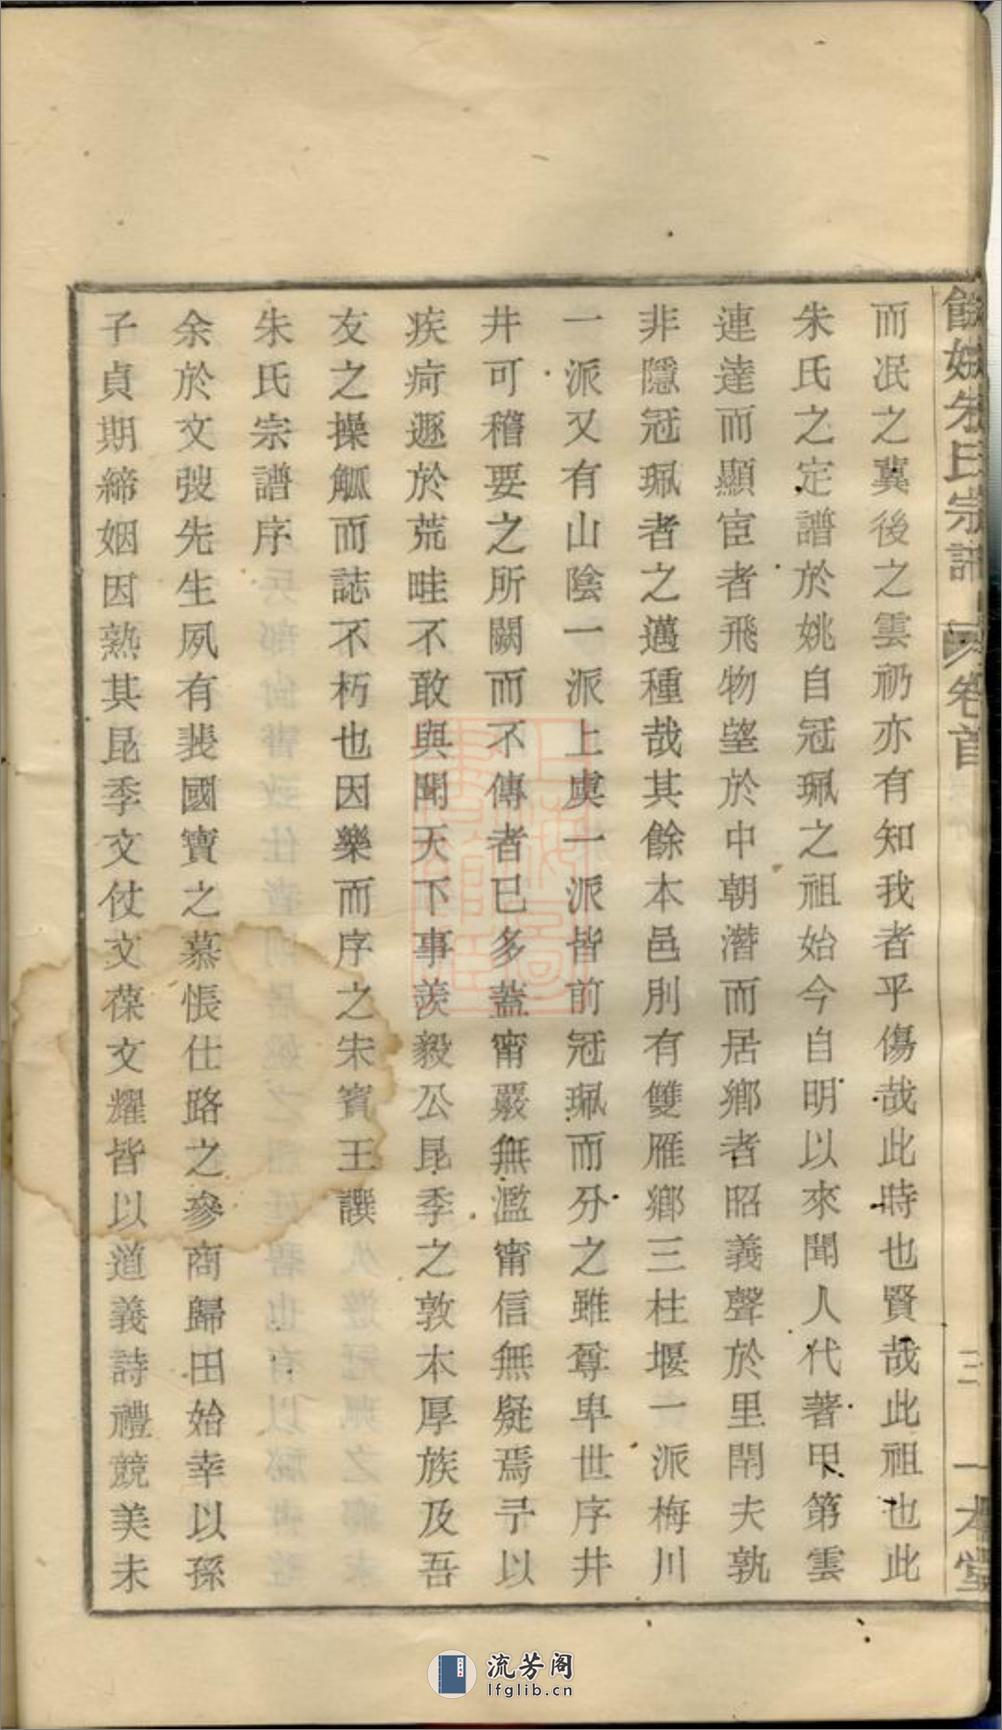 餘姚朱氏宗譜 卷首 三 一本堂
而泯之冀後之雲礽亦有知我者乎傷哉此時也賢哉此祖也此
朱氏之定譜於姚自冠珮之祖始今自明以來聞人代著甲第雲
連達而顯宦者飛物望於中朝潛而居鄉者昭義聲於里閈夫孰
非隱冠珮者之邁種哉其餘本邑別有雙雁鄉三柱堰一派梅川
一派又有山陰一派上虞一派皆前冠珮而分之雖尊卑世序井
井可稽要之所闕而不傳者已多蓋甯嚴無濫甯信無疑焉予以
疾疴遯於荒畦不敢與聞天下事羨毅公昆季之敦本厚族及吾
友之操觚而誌不朽也因樂而序之宋賓王譔
朱氏宗譜序
余於文弢先生夙有裴國寶之慕悵仕路之參商歸田始幸以孫
子貞期締姻因熟其昆季文仗文葆文耀皆以道義詩禮競美未
流芳阁
lfglib.cn